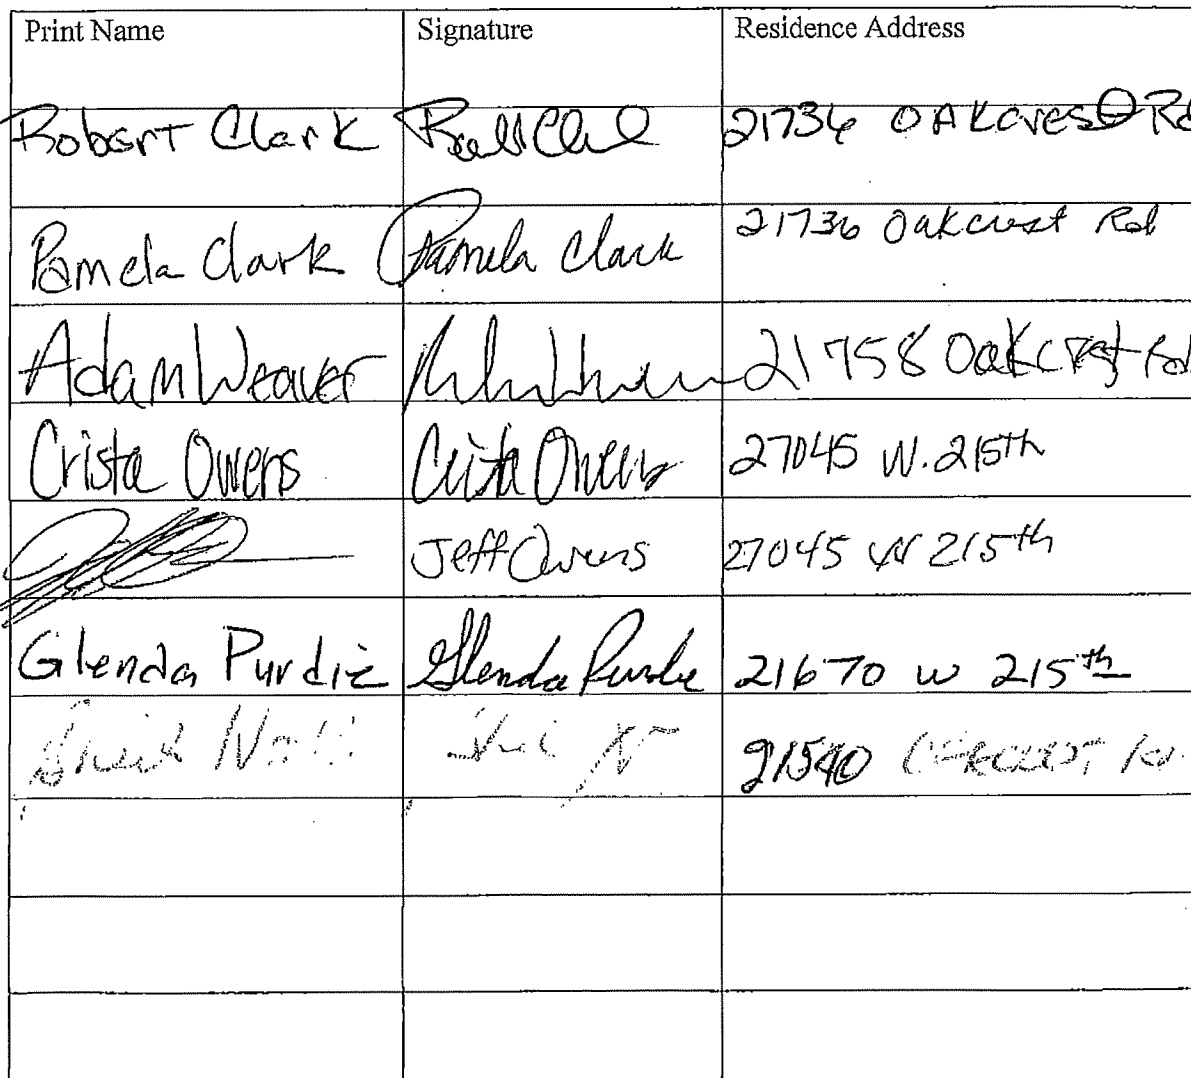 Print Name Signature Residence Address
Robert Clark 21736 OAKcrest Rd
Pamela Clark Pamela Clark 21736 Oakcrest Rd
Adam Weaver 21758 Oakcrest Rd
Crista Owens Crista Owens 27045 W. 215th
Jeff Owens 27045 W 215th
Glenda Purdie Glenda Purdie 21670 W 215th
21540